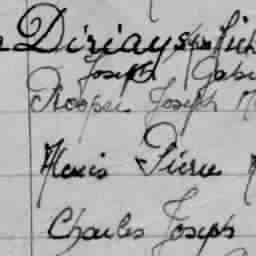 Diriays
Joseph Gabr
Prosper Joseph M
Alexis Pierre
Charles Joseph